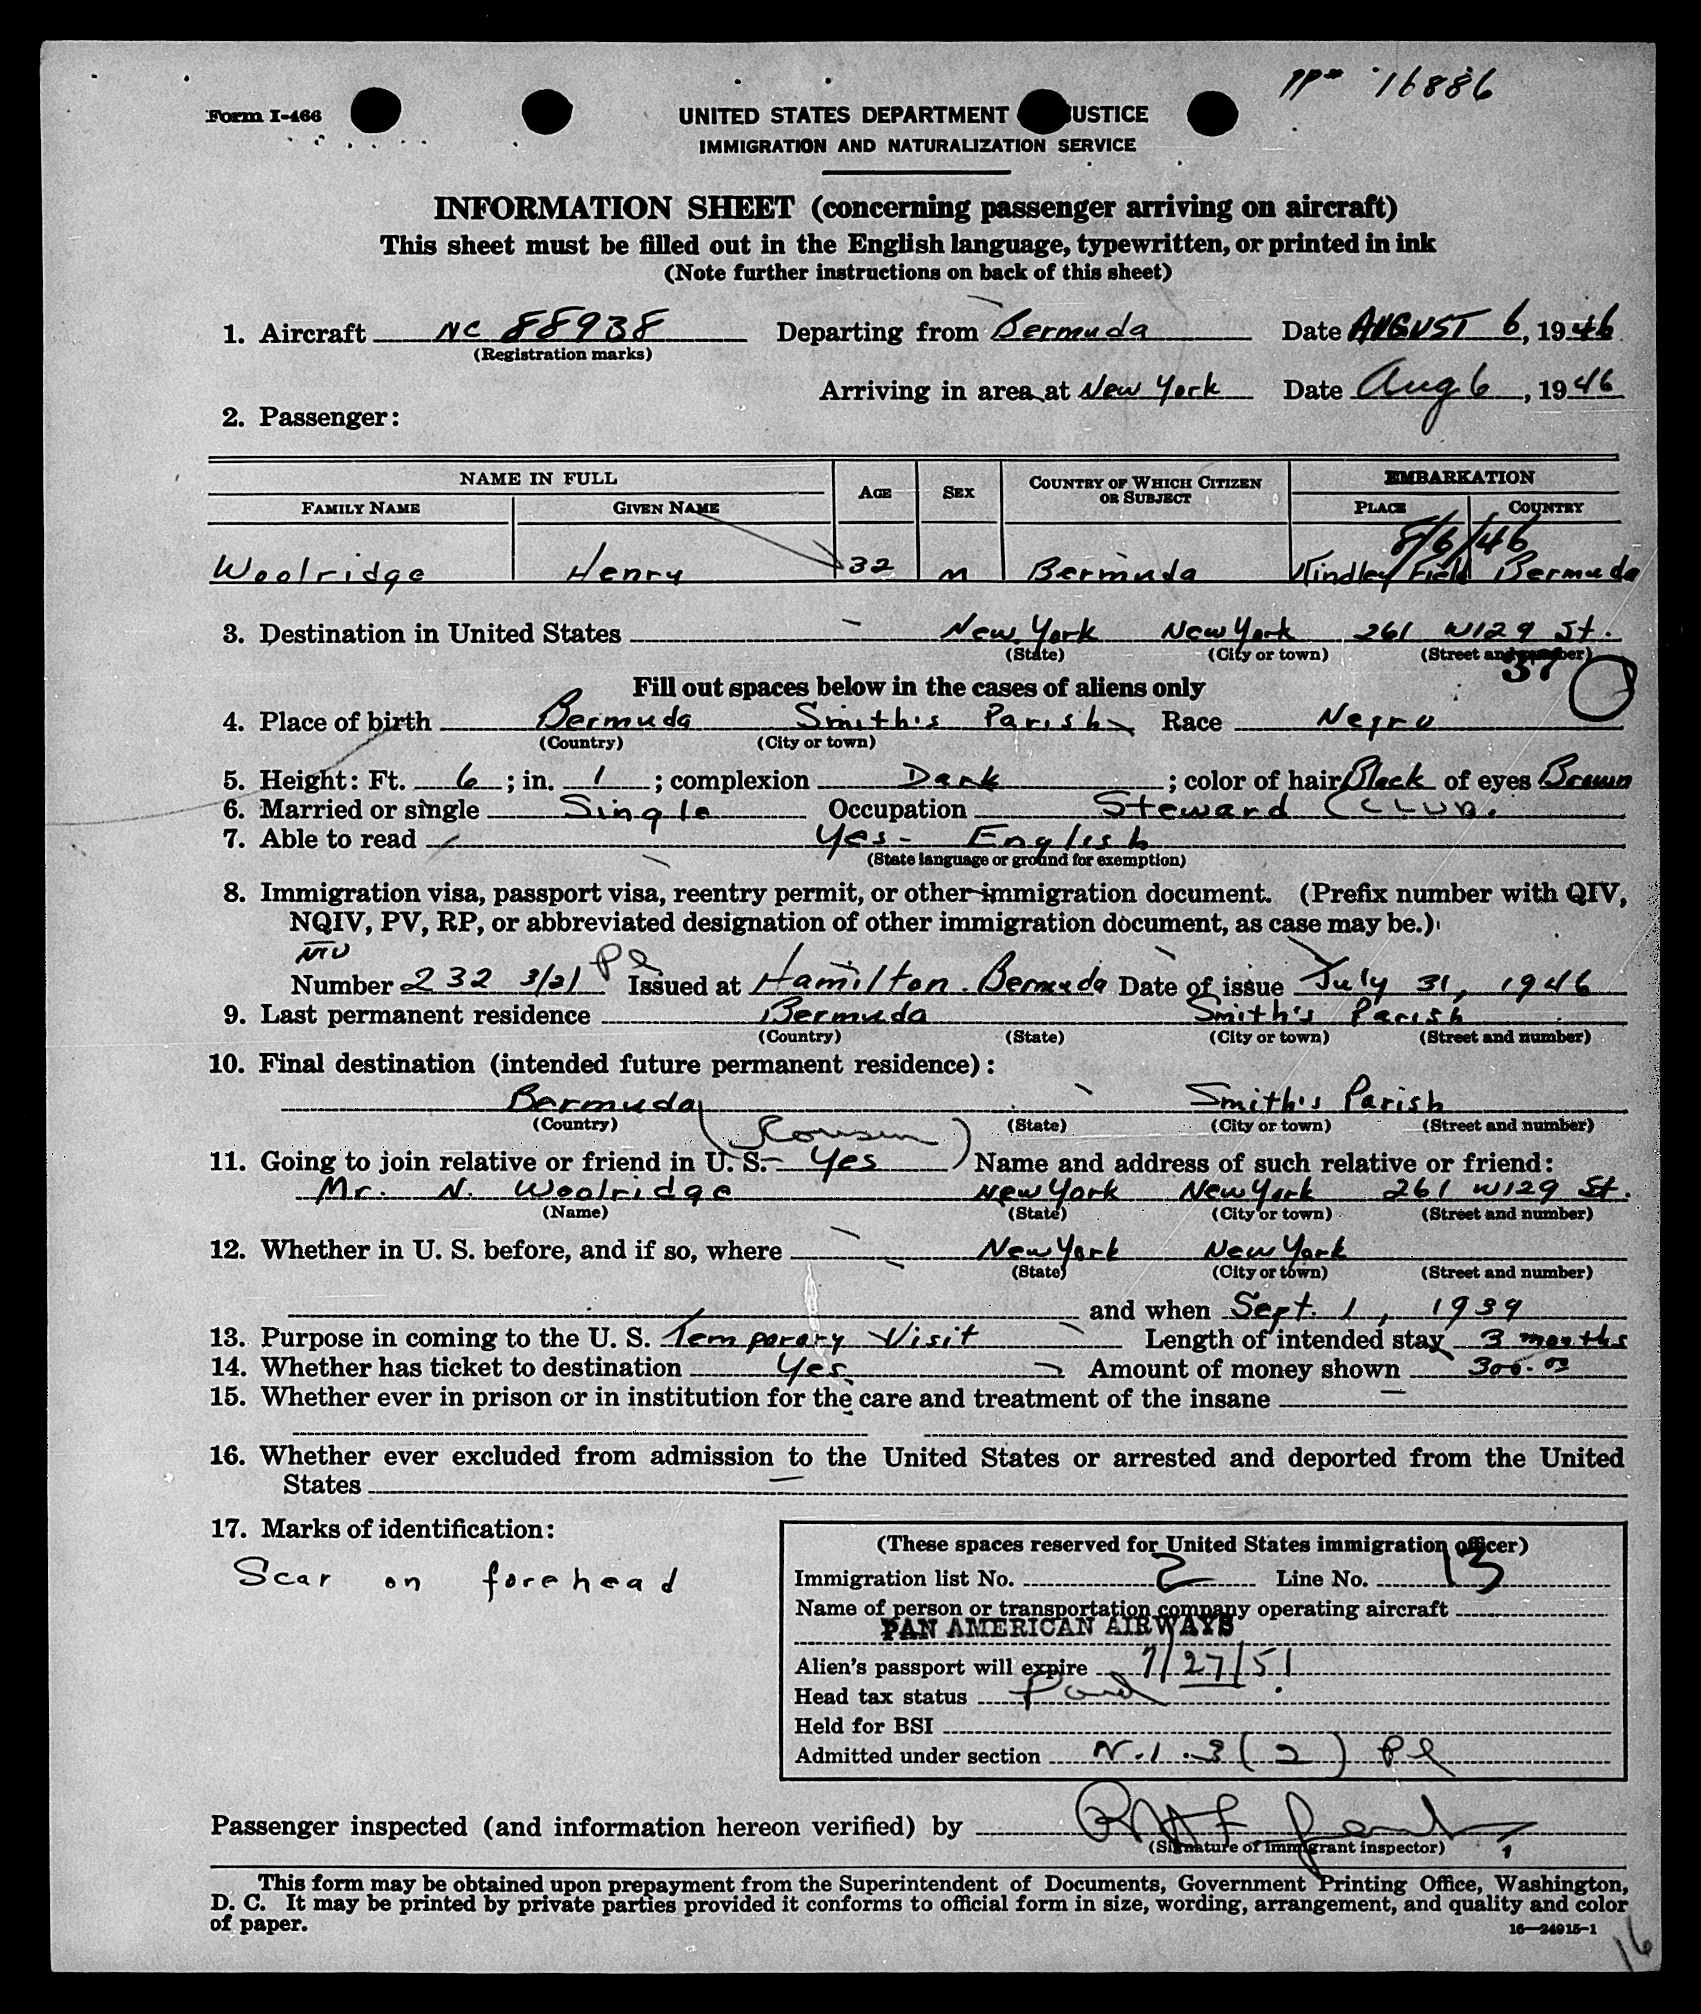 PP# 16886
Form I-466
UNITED STATES DEPARTMENT JUSTICE
IMMIGRATION AND NATURALIZATION SERVICE
INFORMATION SHEET (concerning passenger arriving on aircraft)
This sheet must be filled out in the English language, typewritten, or printed in ink
(Note further instructions on back of this sheet)
1. Aircraft NC 88938 Departing from Bermuda Date AUGUST 6, 1946
(Registration marks)
Arriving in area at New York Date Aug 6, 1946
2. Passenger:
NAME IN FULL AGE SEX COUNTRY OF WHICH CITIZEN OR SUBJECT EMBARKATION
FAMILY NAME GIVEN NAME PLACE COUNTRY
8/6/46
Woolridge Henry 32 M Bermuda Kindley Field Bermuda
3. Destination in United States New York New York 261 W129 St.
(State) (City or town) (Street and number)
37
Fill out spaces below in the cases of aliens only
4. Place of birth Bermuda Smith's Parish Race Negro
(Country) (City or town)
5. Height: Ft. 6; in. 1; complexion Dark; color of hair Black of eyes Brown
6. Married or single Single Occupation Steward (CLUB.
7. Able to read Yes - English
(State language or ground for exemption)
8. Immigration visa, passport visa, reentry permit, or other immigration document. (Prefix number with QIV,
NQIV, PV, RP, or abbreviated designation of other immigration document, as case may be.)
Number 232 3/21 Issued at Hamilton. Bermuda Date of issue July 31, 1946
9. Last permanent residence Bermuda Smith's Parish
(Country) (State) (City or town) (Street and number)
10. Final destination (intended future permanent residence):
Bermuda Smith's Parish
(Country) (State) (City or town) (Street and number)
(Cousin)
11. Going to join relative or friend in U. S. Yes Name and address of such relative or friend:
Mr. N. Woolridge New York New York 261 W129 St.
(Name) (State) (City or town) (Street and number)
12. Whether in U. S. before, and if so, where New York New York
(State) (City or town) (Street and number)
and when Sept. 1, 1939
13. Purpose in coming to the U. S. Temporary Visit Length of intended stay 3 months
14. Whether has ticket to destination Yes. Amount of money shown 300.00
15. Whether ever in prison or in institution for the care and treatment of the insane —
16. Whether ever excluded from admission to the United States or arrested and deported from the United
States —
17. Marks of identification:
Scar on forehead
(These spaces reserved for United States immigration officer)
Immigration list No. 2 Line No. 13
Name of person or transportation company operating aircraft
PAN AMERICAN AIRWAYS
Alien's passport will expire 7/27/51
Head tax status Paid
Held for BSI
Admitted under section N.1.3(2)
Passenger inspected (and information hereon verified) by
(Signature of immigrant inspector)
This form may be obtained upon prepayment from the Superintendent of Documents, Government Printing Office, Washington,
D. C. It may be printed by private parties provided it conforms to official form in size, wording, arrangement, and quality and color
of paper.
16—24915-1
16